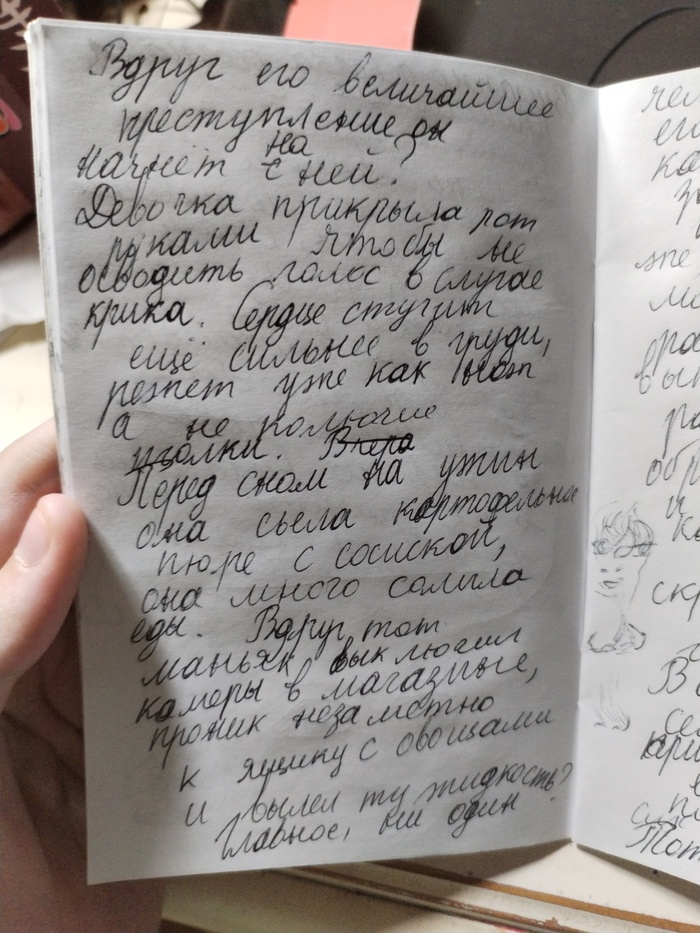 Вдруг его величайшее
преступление он
на
начнёт с ней?
Девочка прикрыла рот
руками чтобы не
осводить голос в случае
крика. Сердце стучит
ещё сильнее в груди,
режет уже как нож
а не колючие
иголки. Вчера
Перед сном на ужин
она сьела картофельное
пюре с сосиской,
она много солила
еды. Вдруг, тот
маньяк выключил
камеры в магазине,
проник незаметно
к ящику с овощами
и вылел ту жидкость?
Главное, ни один
чел
его
ка
же
ра
вы
ра
обр
и
ка
скр
В
се
кри
Пот